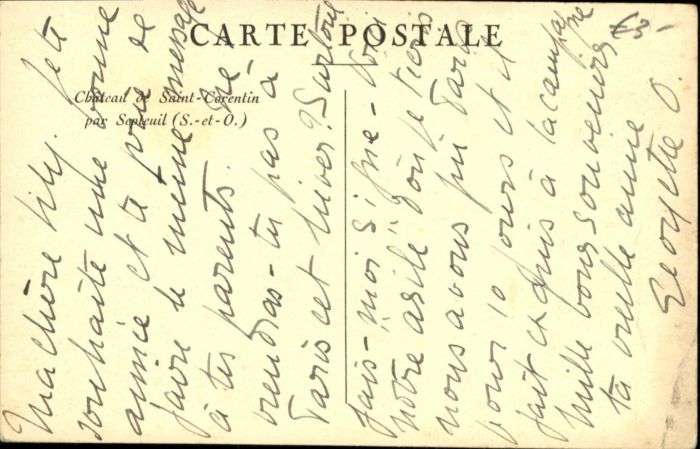 CARTE POSTALE
Château de Saint-Corentin
par Septeuil (S.-et-O.)
£3-
Ma chère Lily. Je te
souhaite une bonne
année et te prie de
faire le même message
à tes parents.
viendras-tu pas à
Paris cet hiver? Surtout
fais-moi signe -
notre asile" d'où je t'écris
nous avons fui Paris
pour 10 jours et il
fait exquis à la campagne
Mille bons souvenirs
ta vieille amie
Georgette O.